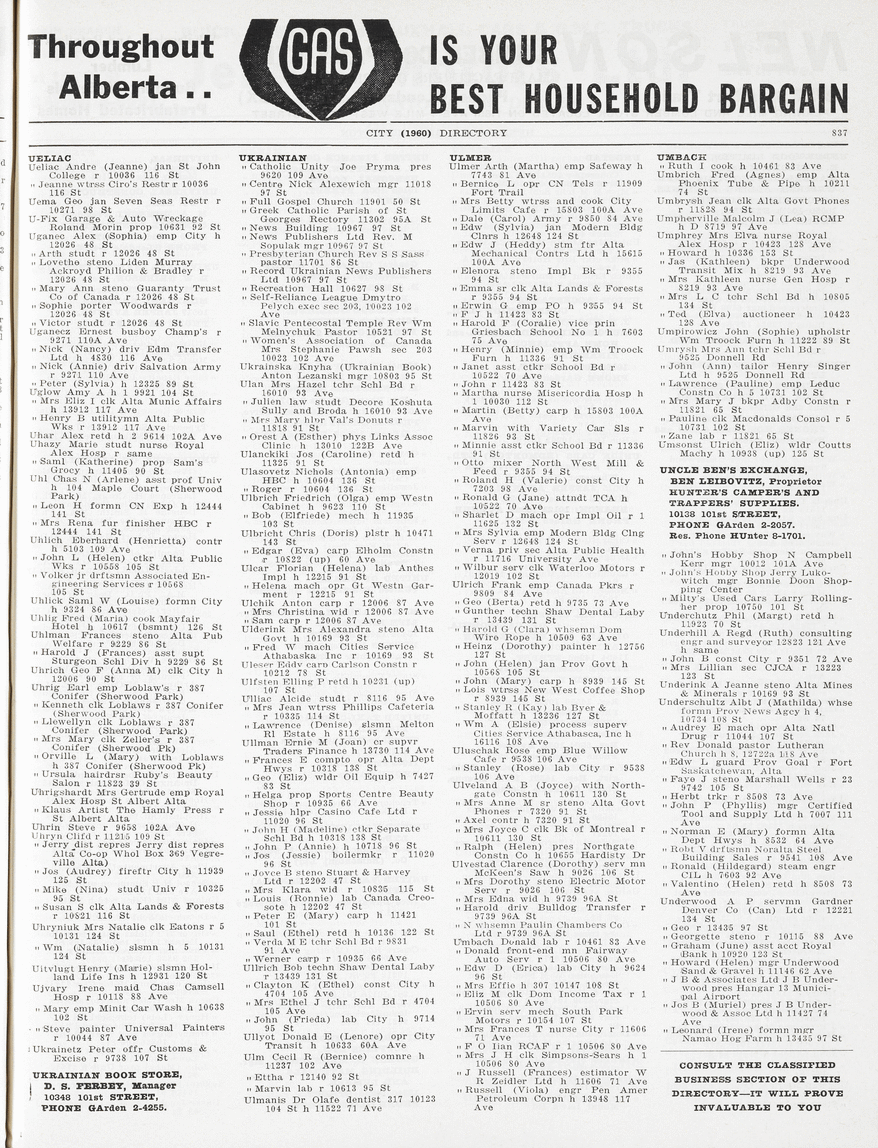 Throughout
Alberta . .
GAS
IS YOUR
BEST HOUSEHOLD BARGAIN
CITY (1960) DIRECTORY
837
UELIAC
Ueliac Andre (Jeanne) jan St John
College r 10036 116 St
" Jeanne wtrss Ciro's Restr r 10036
116 St
Uema Geo jan Seven Seas Restr r
10271 98 St
U-Fix Garage & Auto Wreckage
Roland Morin prop 10631 92 St
Uganec Alex (Sophia) emp City h
12026 48 St
" Arth studt r 12026 48 St
" Lovetho steno Liden Murray
Ackroyd Philion & Bradley r
12026 48 St
" Mary Ann steno Guaranty Trust
Co of Canada r 12026 48 St
" Sophie porter Woodwards r
12026 48 St
" Victor studt r 12026 48 St
Uganecz Ernest busboy Champ's r
9271 110A Ave
" Nick (Nancy) driv Edm Transfer
Ltd h 4830 116 Ave
" Nick (Annie) driv Salvation Army
r 9271 110 Ave
" Peter (Sylvia) h 12325 89 St
Uglow Amy A h 1 9921 104 St
" Mrs Eliz I clk Alta Munic Affairs
h 13912 117 Ave
" Henry B utilitymn Alta Public
Wks r 13912 117 Ave
Uhar Alex retd h 2 9614 102A Ave
Uhazy Marie studt nurse Royal
Alex Hosp r same
" Saml (Katherine) prop Sam's
Grocy h 11405 90 St
Uhl Chas N (Arlene) asst prof Univ
h 104 Maple Court (Sherwood
Park)
" Leon H formn CN Exp h 12444
141 St
" Mrs Rena fur finisher HBC r
12444 141 St
Uhlich Eberhard (Henrietta) contr
h 5103 109 Ave
" John L (Helen) ctkr Alta Public
Wks r 10558 105 St
" Volker jr drftsmn Associated En-
gineering Services r 10568
105 St
Uhlick Saml W (Louise) formn City
h 9324 86 Ave
Uhlig Fred (Maria) cook Mayfair
Hotel h 10617 (bsmnt) 126 St
Uhlman Frances steno Alta Pub
Welfare r 9229 86 St
" Harold J (Frances) asst supt
Sturgeon Schl Div h 9229 86 St
Uhrich Geo F (Anna M) clk City h
12006 90 St
Uhrig Earl emp Loblaw's r 387
Conifer (Sherwood Park)
" Kenneth clk Loblaws r 387 Conifer
(Sherwood Park)
" Llewellyn clk Loblaws r 387
Conifer (Sherwood Park)
" Mrs Mary clk Zeller's r 387
Conifer (Sherwood Pk)
" Orville L (Mary) with Loblaws
h 387 Conifer (Sherwood Pk)
" Ursula hairdrsr Ruby's Beauty
Salon r 11823 39 St
Uhrigshardt Mrs Gertrude emp Royal
Alex Hosp St Albert Alta
" Klaus Artist The Hamly Press r
St Albert Alta
Uhrin Steve r 9658 102A Ave
Uhryn Cliff r 11215 109 St
" Jerry dist repres Jerry dist repres
Alta Co-op Whol Box 369 Vegre-
ville Alta)
" Jos (Audrey) fireftr City h 11939
125 St
" Mike (Nina) studt Univ r 10325
95 St
" Susan S clk Alta Lands & Forests
r 10821 116 St
Uhryniuk Mrs Natalie clk Eatons r 5
10131 124 St
" Wm (Natalie) slsmn h 5 10131
124 St
Uitvlugt Henry (Marie) slsmn Hol-
land Life Ins h 12931 120 St
Ujvary Irene maid Chas Camsell
Hosp r 10118 88 Ave
" Mary emp Minit Car Wash h 10638
102 St
" Steve painter Universal Painters
r 10044 87 Ave
Ukrainetz Peter offr Customs &
Excise r 9738 107 St
UKRAINIAN BOOK STORE,
D. S. FERBEY, Manager
10348 101st STREET,
PHONE GArden 2-4255.
UKRAINIAN
" Catholic Unity Joe Pryma pres
9620 109 Ave
" Centre Nick Alexewich mgr 11018
97 St
" Full Gospel Church 11901 50 St
" Greek Catholic Parish of St
Georges Rectory 11302 95A St
" News Building 10967 97 St
" News Publishers Ltd Rev. M
Sopulak mgr 10967 97 St
" Presbyterian Church Rev S S Sass
pastor 11701 86 St
" Record Ukrainian News Publishers
Ltd 10967 97 St
" Recreation Hall 10627 98 St
" Self-Reliance League Dmytro
Pelych exec sec 203, 10023 102
Ave
" Slavic Pentecostal Temple Rev Wm
Melnychuk Pastor 10521 97 St
" Women's Association of Canada
Mrs Stephanie Pawsh sec 203
10023 102 Ave
Ukrainska Knyha (Ukrainian Book)
Anton Lezanski mgr 10803 95 St
Ulan Mrs Hazel tchr Schl Bd r
16010 93 Ave
" Julien law studt Decore Koshuta
Sully and Broda h 16010 93 Ave
" Mrs Mary hlpr Val's Donuts r
11818 91 St
" Orest A (Esther) phys Links Assoc
Clinic h 13010 122B Ave
Ulanckiki Jos (Caroline) retd h
11325 91 St
Ulasovetz Nichols (Antonia) emp
HBC h 10604 136 St
" Roger r 10604 136 St
Ulbrich Friedrich (Olga) emp Westn
Cabinet h 9623 110 St
" Bob (Elfriede) mech h 11935
103 St
Ulbricht Chris (Doris) plstr h 10471
143 St
" Edgar (Eva) carp Elholm Constn
r 10822 (up) 60 Ave
Ulcar Florian (Helena) lab Anthes
Impl h 12215 91 St
" Helena mach opr Gt Westn Gar-
ment r 12215 91 St
Ulchik Anton carp r 12006 87 Ave
" Mrs Christina wid r 12006 87 Ave
" Sam carp r 12006 87 Ave
Ulderink Mrs Alexandra steno Alta
Govt h 10169 93 St
" Fred W mach Cities Service
Athabaska Inc r 10169 93 St
Uleser Eddy carp Carlson Constn r
10212 78 St
Ulfsten Elling P retd h 10231 (up)
107 St
Ulliac Alcide studt r 8116 95 Ave
" Mrs Jean wtrss Phillips Cafeteria
r 10335 114 St
" Lawrence (Denise) slsmn Melton
Rl Estate h 8116 95 Ave
Ullman Ernie M (Joan) cr supvr
Traders Finance h 13730 114 Ave
" Frances E compto opr Alta Dept
Hwys r 10318 138 St
" Geo (Eliz) wldr Oil Equip h 7427
83 St
" Helga prop Sports Centre Beauty
Shop r 10935 66 Ave
" Jessie hlpr Casino Cafe Ltd r
11020 96 St
" John H (Madeline) ctkr Separate
Schl Bd h 10318 138 St
" John P (Annie) h 10718 96 St
" Jos (Jessie) boilermkr r 11020
96 St
" Joyce B steno Stuart & Harvey
Ltd r 12202 47 St
" Mrs Klara wid r 10835 115 St
" Louis (Ronnie) lab Canada Creo-
sote h 12202 47 St
" Peter E (Mary) carp h 11421
101 St
" Saul (Ethel) retd h 10136 122 St
" Verda M E tchr Schl Bd r 9831
91 Ave
" Werner carp r 10935 66 Ave
Ullrich Bob techn Shaw Dental Laby
r 13439 131 St
" Clayton K (Ethel) const City h
4704 105 Ave
" Mrs Ethel J tchr Schl Bd r 4704
105 Ave
" John (Frieda) lab City h 9714
95 St
Ullyot Donald E (Lenore) opr City
Transit h 10633 60A Ave
Ulm Cecil R (Bernice) comnre h
11237 102 Ave
" Ettha r 12140 92 St
" Marvin lab r 10613 95 St
Ulmanis Dr Olafe dentist 317 10123
104 St h 11522 71 Ave
ULMER
Ulmer Arth (Martha) emp Safeway h
7743 81 Ave
" Bernice L opr CN Tels r 11909
Fort Trail
" Mrs Betty wtrss and cook City
Limits Cafe r 15803 100A Ave
" Dale (Carol) Army r 9850 84 Ave
" Edw (Sylvia) jan Modern Bldg
Clnrs h 12648 124 St
" Edw J (Heddy) stm ftr Alta
Mechanical Contrs Ltd h 15615
100A Ave
" Elenora steno Impl Bk r 9355
94 St
" Emma sr clk Alta Lands & Forests
r 9355 94 St
" Erwin G emp PO h 9355 94 St
" F J h 11423 83 St
" Harold F (Coralie) vice prin
Griesbach School No 1 h 7603
75 Ave
" Henry (Minnie) emp Wm Troock
Furn h 11336 91 St
" Janet asst ctkr School Bd r
10522 70 Ave
" John r 11423 83 St
" Martha nurse Misericordia Hosp h
1 10030 112 St
" Martin (Betty) carp h 15803 100A
Ave
" Marvin with Variety Car Sls r
11826 93 St
" Minnie asst ctkr School Bd r 11336
91 St
" Otto mixer North West Mill &
Feed r 9355 94 St
" Roland H (Valerie) const City h
7203 98 Ave
" Ronald G (Jane) attndt TCA h
10522 70 Ave
" Sharlet D mach opr Impl Oil r 1
11625 132 St
" Mrs Sylvia emp Modern Bldg Clng
Serv r 12648 124 St
" Verna priv sec Alta Public Health
r 11716 University Ave
" Wilbur serv clk Waterloo Motors r
12019 102 St
Ulrich Frank emp Canada Pkrs r
9809 84 Ave
" Geo (Berta) retd h 9735 73 Ave
" Gunther techn Shaw Dental Laby
r 13439 131 St
" Harold G (Clara) whsemn Dom
Wire Rope h 10509 63 Ave
" Heinz (Dorothy) painter h 12756
127 St
" John (Helen) jan Prov Govt h
10568 105 St
" John (Mary) carp h 8939 145 St
" Lois wtrss New West Coffee Shop
r 8939 145 St
" Stanley R (Kay) lab Byer &
Moffatt h 13236 127 St
" Wm A (Elsie) process superv
Cities Service Athabasca, Inc h
16116 108 Ave
Uluschak Rose emp Blue Willow
Cafe r 9538 106 Ave
" Stanley (Rose) lab City r 9538
106 Ave
Ulveland A B (Joyce) with North-
gate Constn h 10611 130 St
" Mrs Anne M sr steno Alta Govt
Phones r 7320 91 St
" Axel contr h 7320 91 St
" Mrs Joyce C clk Bk of Montreal r
10611 130 St
" Ralph (Helen) pres Northgate
Constn Co h 10655 Hardisty Dr
Ulvestad Clarence (Dorothy) serv mn
McKeen's Saw h 9026 106 St
" Mrs Dorothy steno Electric Motor
Serv r 9026 106 St
" Mrs Edna wid h 9739 96A St
" Harold driv Bulldog Transfer r
9739 96A St
" N whsemn Paulin Chambers Co
Ltd r 9739 96A St
Umbach Donald lab r 10461 83 Ave
" Donald front-end mn Fairway
Auto Serv r 1 10506 80 Ave
" Edw D (Erica) lab City h 9624
96 St
" Mrs Effie h 307 10147 108 St
" Eliz M clk Dom Income Tax r 1
10506 80 Ave
" Ervin serv mech South Park
Motors r 10154 107 St
" Mrs Frances T nurse City r 11606
71 Ave
" F O lian RCAF r 1 10506 80 Ave
" Mrs J H clk Simpsons-Sears h 1
10506 80 Ave
" J Russell (Frances) estimator W
R Zeidler Ltd h 11606 71 Ave
" Russell (Viola) engr Pen Amer
Petroleum Corpn h 13948 117
Ave
UMBACH
" Ruth I cook h 10461 83 Ave
Umbrich Fred (Agnes) emp Alta
Phoenix Tube & Pipe h 10211
74 St
Umbrysh Jean clk Alta Govt Phones
r 11828 94 St
Umpherville Malcolm J (Lea) RCMP
h D 8719 97 Ave
Umphrey Mrs Elva nurse Royal
Alex Hosp r 10423 128 Ave
" Howard h 10336 153 St
" Jas (Kathleen) bkpr Underwood
Transit Mix h 8219 93 Ave
" Mrs Kathleen nurse Gen Hosp r
8219 93 Ave
" Mrs L C tchr Schl Bd h 10805
134 St
" Ted (Elva) auctioneer h 10423
128 Ave
Umpirowicz John (Sophie) upholstr
Wm Troock Furn h 11222 89 St
Umrysh Mrs Ann tchr Schl Bd r
9525 Donnell Rd
" John (Ann) tailor Henry Singer
Ltd h 9525 Donnell Rd
" Lawrence (Pauline) emp Leduc
Constn Co h 5 10731 102 St
" Mrs Mary J bkpr Adby Constn r
11821 65 St
" Pauline clk Macdonalds Consol r 5
10731 102 St
" Zane lab r 11821 65 St
Umsonst Ulrich (Eliz) wldr Coutts
Machy h 10938 (up) 125 St
UNCLE BEN'S EXCHANGE,
BEN LEIBOVITZ, Proprietor
HUNTER'S CAMPER'S AND
TRAPPERS' SUPPLIES.
10138 101st STREET,
PHONE GArden 2-2057.
Res. Phone HUnter 8-1701.
" John's Hobby Shop N Campbell
Kerr mgr 10012 101A Ave
" John's Hobby Shop Jerry Luko-
witch mgr Bonnie Doon Shop-
ping Center
" Milty's Used Cars Larry Rolling-
her prop 10750 101 St
Underchutz Phil (Margt) retd h
11923 70 St
Underhill A Regd (Ruth) consulting
engr and surveyor 12823 121 Ave
h same
" John B const City r 9351 72 Ave
" Mrs Lillian sec CJCA r 13223
123 St
Underink A Jeanne steno Alta Mines
& Minerals r 10169 93 St
Underschultz Albt J (Mathilda) whse
formn Prov News Agcy h 4,
10734 108 St
" Audrey E mach opr Alta Natl
Drug r 11044 107 St
" Rev Donald pastor Lutheran
Church 8, 12722a 118 Ave
" Edw L guard Prov Goal r Fort
Saskatchewan, Alta
" Faye J steno Marshall Wells r 23
9742 105 St
" Herbt trkr r 8508 73 Ave
" John P (Phyllis) mgr Certified
Tool and Supply Ltd h 7007 111
Ave
" Norman E (Mary) formn Alta
Dept Hwys h 8532 64 Ave
" Robt V drftsmn Noralta Steel
Building Sales r 9541 108 Ave
" Ronald (Hildegard) steam engr
CIL h 7603 92 Ave
" Valentino (Helen) retd h 8508 73
Ave
Underwood A P servmn Gardner
Denver Co (Can) Ltd r 12221
134 St
" Geo r 13435 97 St
" Georgette steno r 10115 88 Ave
" Graham (June) asst acct Royal
Bank h 10920 123 St
" Howard (Helen) mgr Underwood
Sand & Gravel h 11146 62 Ave
" J B & Associates Ltd J B Under-
wood pres Hangar 13 Munici-
pal Airport
" Jos B (Muriel) pres J B Under-
wood & Assoc Ltd h 11427 74
Ave
" Leonard (Irene) formn mgr
Namao Hog Farm h 13435 97 St
CONSULT THE CLASSIFIED
BUSINESS SECTION OF THIS
DIRECTORY—IT WILL PROVE
INVALUABLE TO YOU